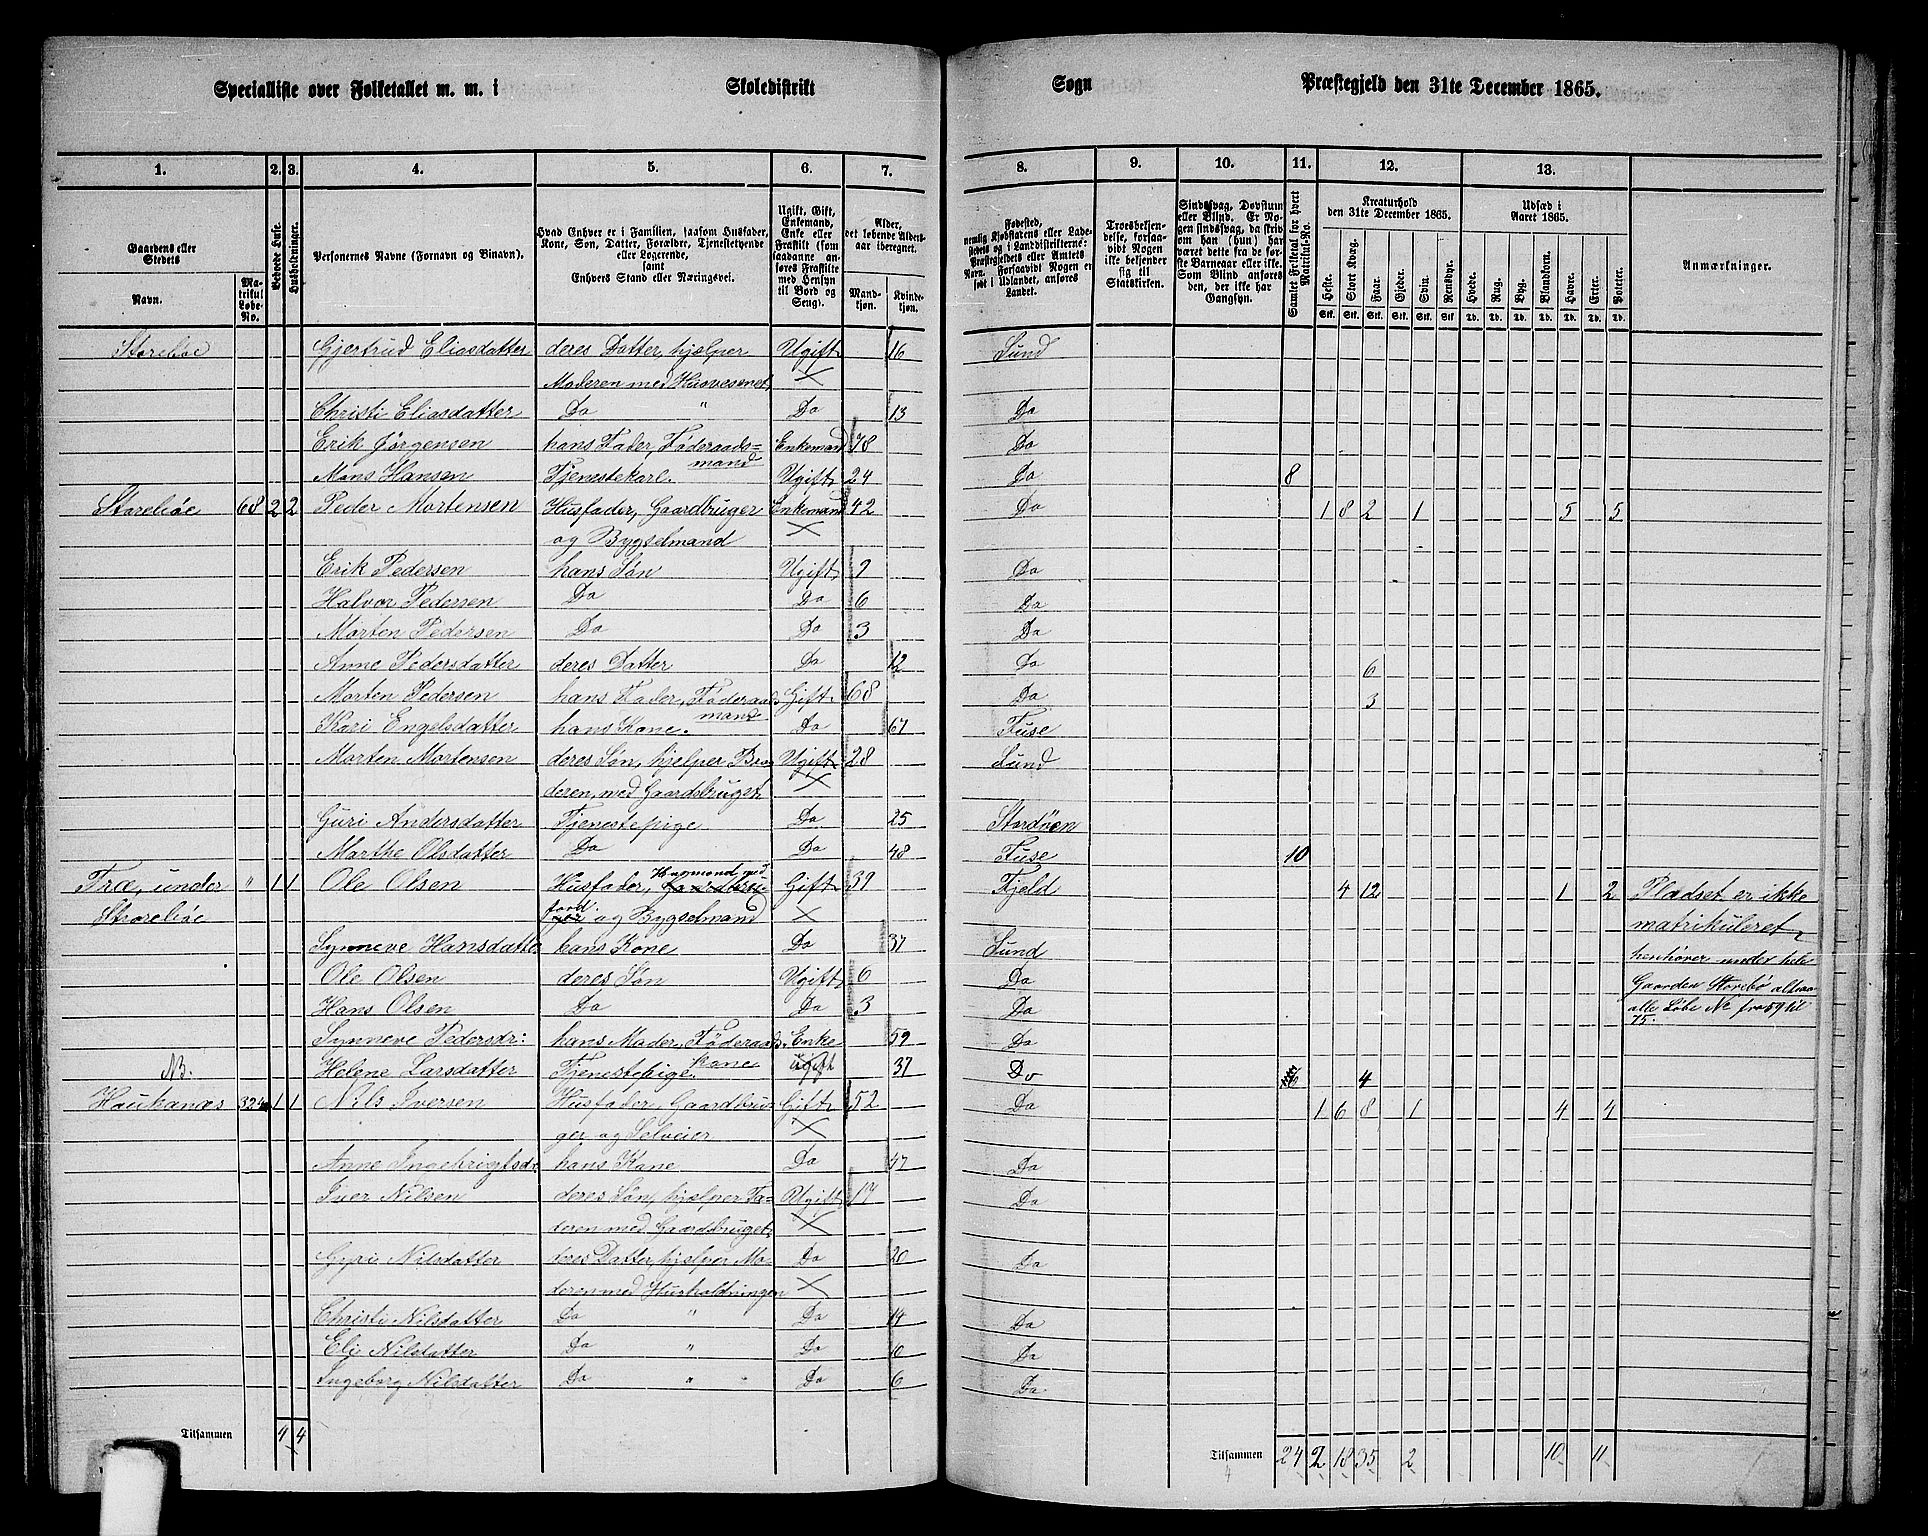 Specialliste over Folketallet m. m. i Skoledistrikt Sogn Præstegjeld den 31te December 1865.
1. 2. 3. 4. 5. 6. 7. 8. 9. 10. 11. 12. 13.
Gaardens eller Stedets
Navn.
Matrikul Løbe-No.
Beboede Huse.
Husholdninger.
Personernes Navne (Fornavn og Binavn).
Hvad Enhver er i Familien, saasom Husfader, Kone, Søn, Datter, Forældre, Tjenestetyende eller Logerende, samt Enhvers Stand eller Næringsvei.
Ugift, Gift, Enkemand, Enke eller Fraskilt (som saadanne anføres Fraskilte med Hensyn til Bord og Seng).
Alder, det løbende Aldersaar iberegnet.
Mandkjøn.
Kvindekjøn.
Fødested, nemlig Kjøbstadens eller Ladestedets og i Landdistrikterne: Præstegjeldets eller Amtets Navn. Forsaavidt Nogen er født i Udlandet, anføres Landet.
Troesbekjendelse, forsaavidt Nogen ikke bekjender sig til Statskirken.
Sindssvag, Døvstum eller Blind. Er Nogen sindssvag, da skrives om han (hun) har været dette fra de første Barneaar eller ikke. Som Blind anføres den, der ikke har Gangsyn.
Samlet Folketal for hvert Matrikuls-No.
Kreaturhold den 31te December 1865.
Heste. Stort Kvæg. Faar. Gjeder. Svin. Rensdyr.
Stk. Stk. Stk. Stk. Stk. Stk.
Udsæd i Aaret 1865.
Hvede. Rug. Byg. Blandkorn. Havre. Erter. Poteter.
Td. Td. Td. Td. Td. Td. Td.
Anmærkninger.
Storebøe Gjertrud Eliasdatter deres Datter, hjælper Ugift 16 Sund
Moderen med Husvesenet
Christi Eliasdatter Do " Do 13 Do
Erik Jørgensen hans Fader, Føderaads= Enkemand 78 Do
mand
Mons Hansen Tjenestekarl. Ugift 24 Do 8
Storebøe 68 2 2 Peder Mortensen Husfader, Gaardbruger Enkemand 42 Do 1 8 2 1 5 5
og Bygselmand
Erik Pedersen hans Søn Ugift 9 Do
Halvor Pedersen Do Do 6 Do
Morten Pedersen Do Do 3 Do
Anne Pedersdatter deres Datter Do 12 Do 6
Morten Pedersen hans Fader, Føderaads Gift 68 Do 3
mand
Kari Engelsdatter hans Kone. Do 67 Fuse
Morten Mortensen deres Søn, hjelper Bro Ugift 28 Sund
deren, med Gaardsbruget
Guri Andersdatter Tjenestepige Do 25 Stordøen
Marthe Olsdatter Do Do 48 Fuse 10
Træ, under " 1 1 Ole Olsen Husfader, Gaardbru- Gift 39 Fjeld 4 12 1 2 Pladset er ikke
Husmand med
jord.
Storebøe ger og Bygselmand matrikuleret
Synneve Hansdatter hans Kone Do 37 Sund henhører under hele
Ole Olsen deres Søn Ugift 6 Do Gaarden Storebø altsaa
Hans Olsen Do Do 3 Do alle Løbe No fra 59 til
75.
Synneve Pedersdr: hans Moder, Føderaads. Enke 59 Do
Kone
NB. Helene Larsdatter Tjenestepige ugift 37 Do 6 4
Haukanæs 1 1 Nils Iversen Husfader, Gaardbru= Gift 52 Do 1 6 8 1 4 4
ger og Selveier
Anne Ingebrigtsdr hans Kone Do 47 Do
Iver Nilsen deres Søn, hjælper Fa= Ugift 17 Do
deren med Gaardsbruget
Gyri Nilsdatter deres Datter, hjælper Mo= Do 20 Do
deren med Husholdningen
Christi Nilsdatter Do " Do 14 Do
Eli Nilsdatter Do " Do 10 Do
Ingeborg Nilsdatter Do " Do 6 Do
Tilsammen 4 4 Tilsammen 24 2 18 35 2 10 11